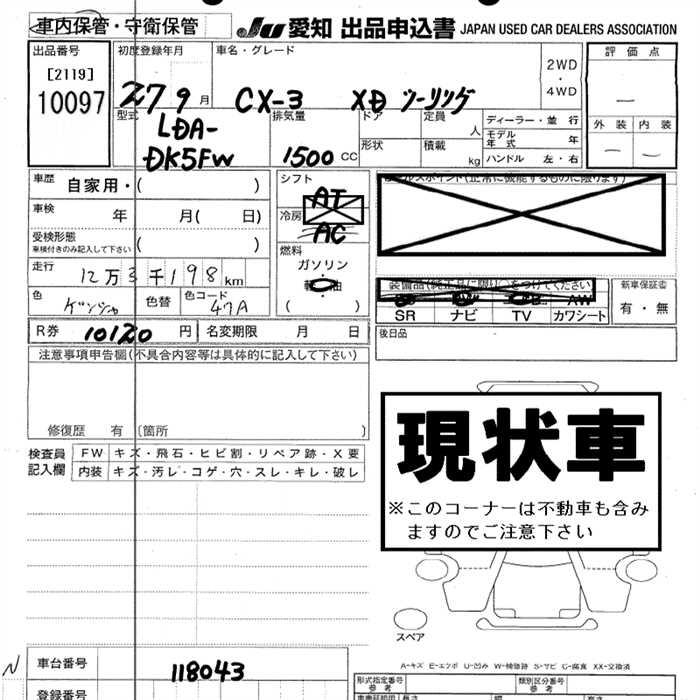 車内保管・守衛保管
JU 愛知 出品申込書 JAPAN USED CAR DEALERS ASSOCIATION
出品番号
[2119]
10097
初度登録年月
27 9 月
車名・グレード
CX-3 XD ツーリング
2WD
・
4WD
評価点
—
外装 内装
— —
型式
LDA-
DK5FW
排気量
1500 CC
ドア
形状
定員
人
積載
kg
ディーラー・並行
モデル年式 年
ハンドル 左・右
車歴 自家用・( )
車検 年 月( 日)
受検形態
車検付きのみ記入して下さい ( )
走行 12万3千198km
色
色替
色コード 47A
シフト
AT
冷房
AC
燃料
ガソリン
軽油
( )
(正常に機能するものに限ります)
装備品(純正品に限り)○をつけてください
AW
SR ナビ TV カワシート
新車保証書
有・無
R券 10120 円
名変期限 月 日
後日品
注意事項申告欄(不具合内容等は具体的に記入して下さい)
修復歴 有 〔箇所 〕
検査員
記入欄
FW キズ・飛石・ヒビ割・リペア跡・X要
内装 キズ・汚レ・コゲ・穴・スレ・キレ・破レ
現状車
※このコーナーは不動車も含み
ますのでご注意下さい
スペア
A-キズ E-エクボ U-凹み W-補修跡 S-サビ C-腐食 XX-交換済
N
車台番号 118043
登録番号
形式指定番号
参考
類別区分番号
参考